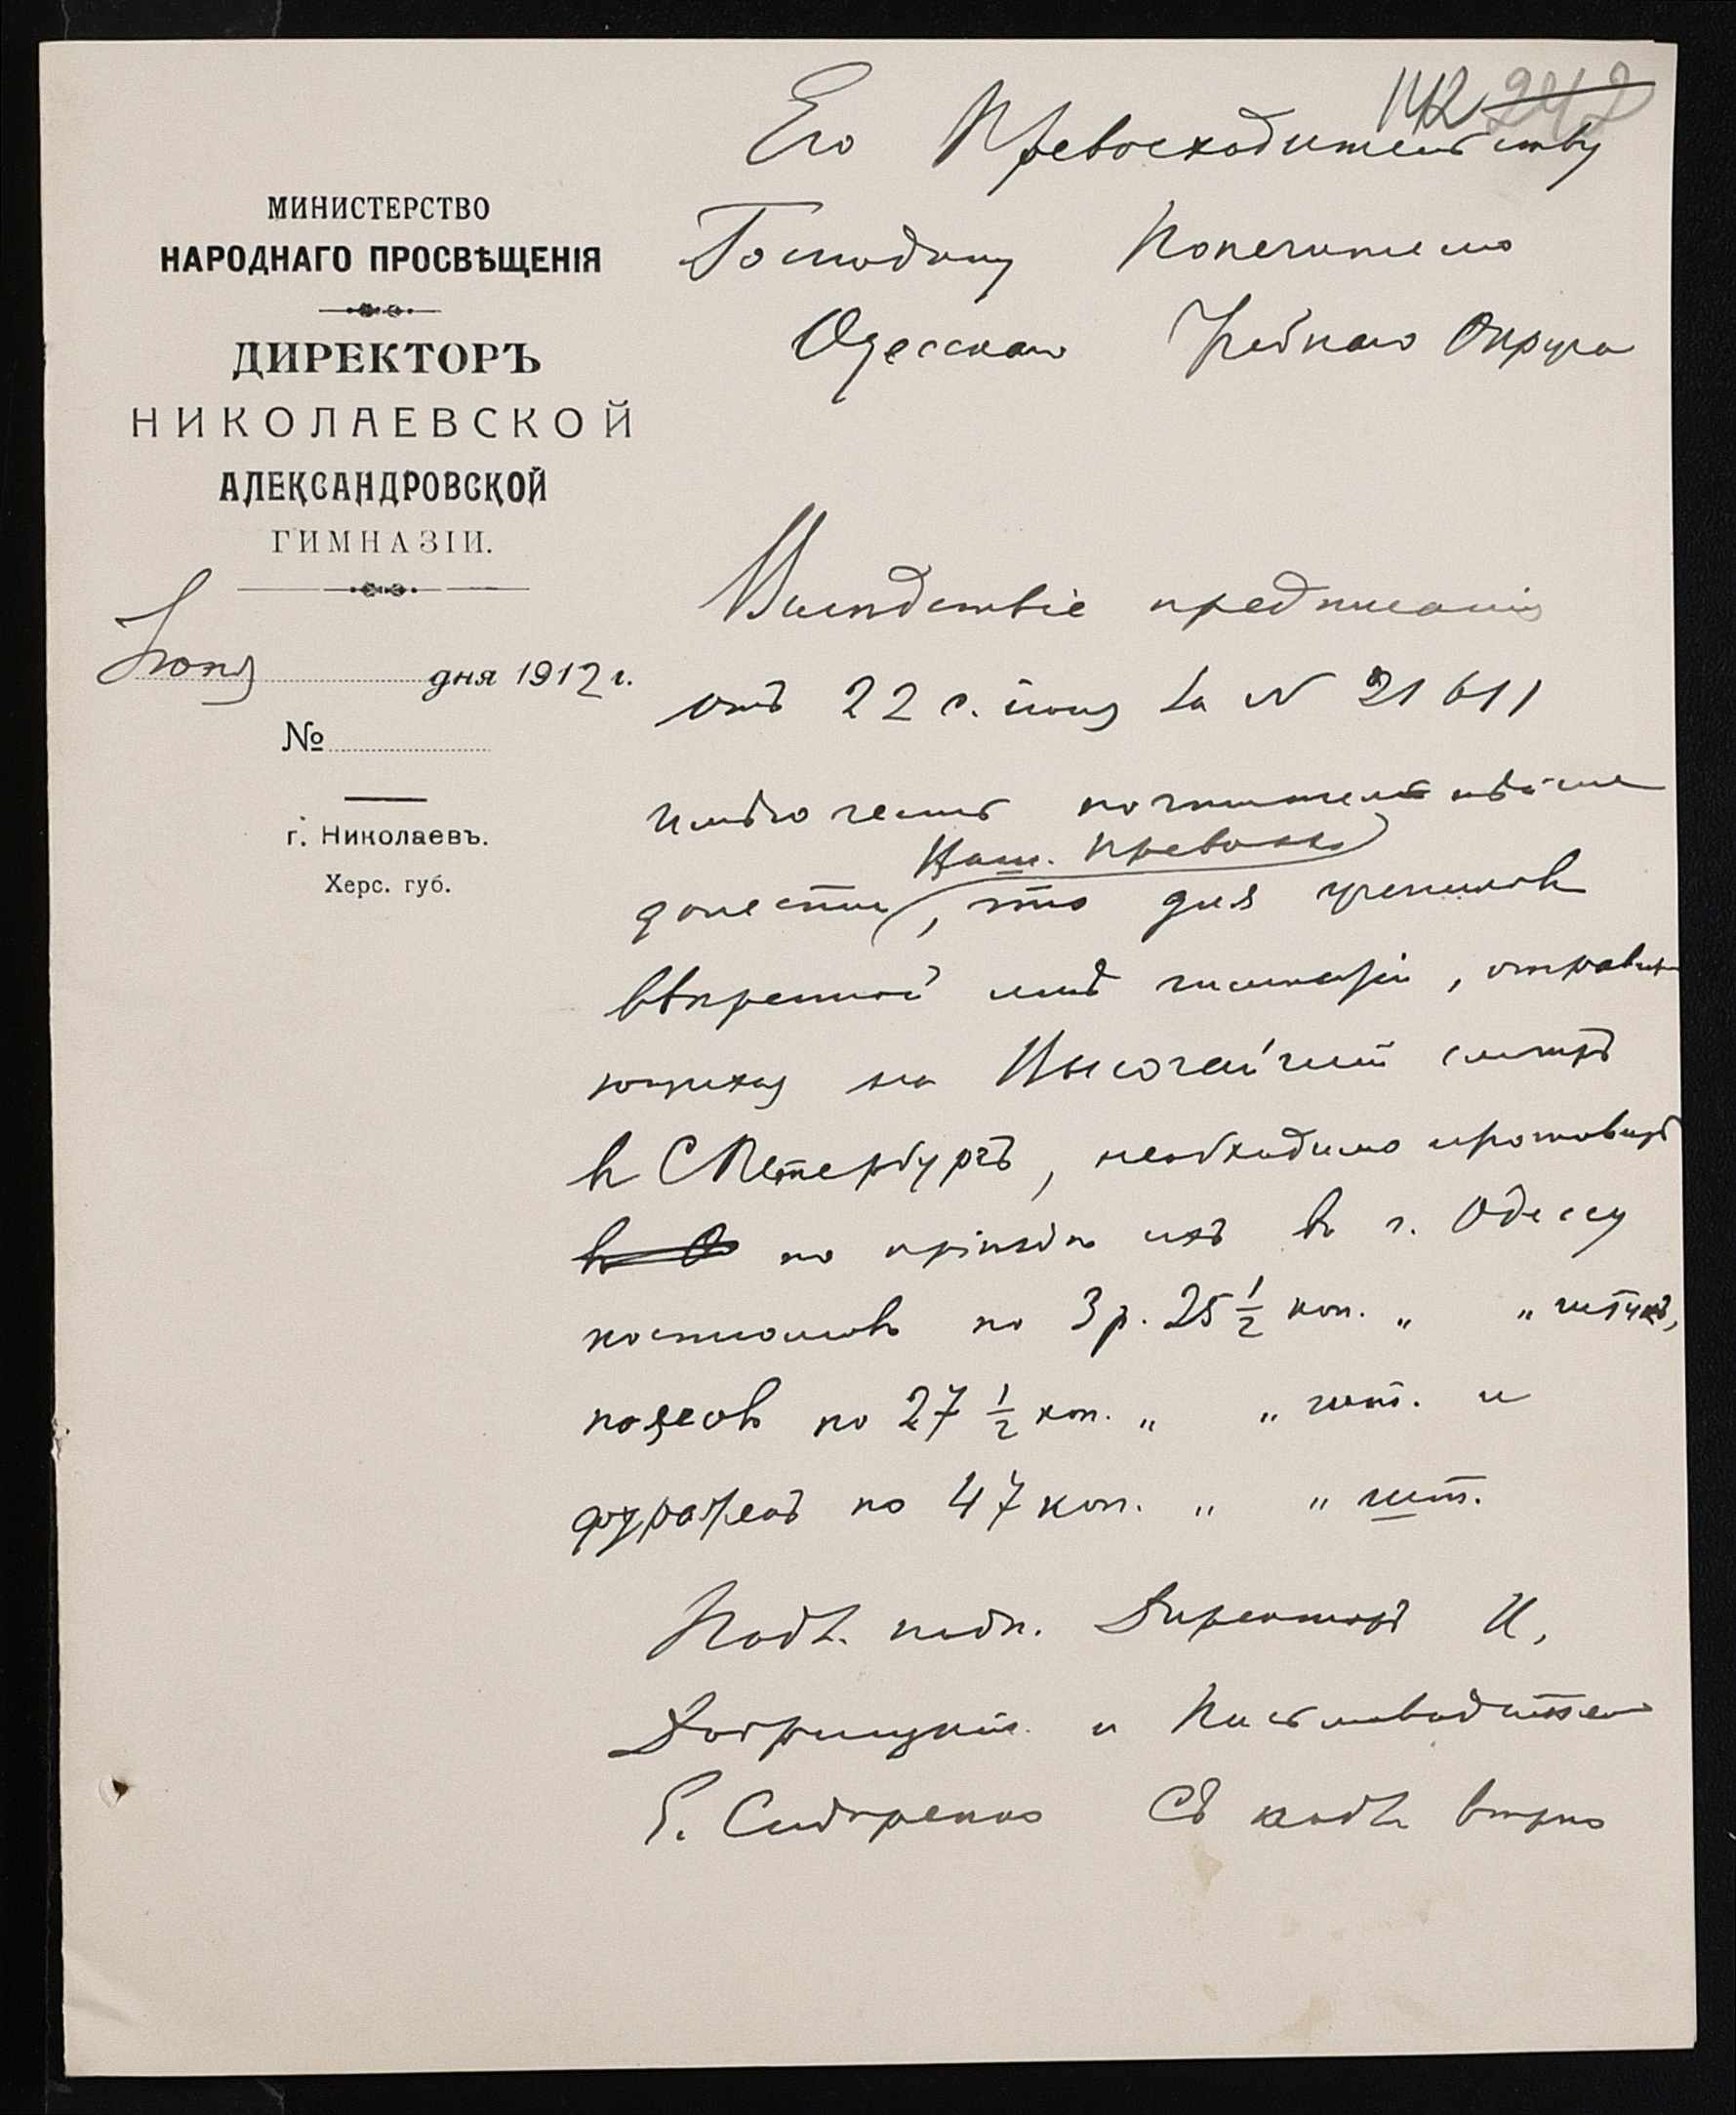 142 242
Его Превосходительству
Господину Попечителю
Одесскаго Учебнаго Округа
МИНИСТЕРСТВО
НАРОДНАГО ПРОСВѢЩЕНІЯ
ДИРЕКТОРЪ
НИКОЛАЕВСКОЙ
АЛЕКСАНДРОВСКОЙ
ГИМНАЗІИ.
Іюня дня 1912 г.
№
г. Николаевъ.
Херс. губ.
Вслѣдствіе предписанія
отъ 22 с. іюня за N 21611
имѣю честь почтительнѣйше
Ваш. Превосх.
донести, что для учениковъ
ввѣренной мнѣ гимназіи, отправля
ющихся на Высочайшій смотръ
въ СПетербургъ, необходимо
по пріѣздѣ ихъ въ г. Одессу
костюмовъ по 3 р. 25 1/2 коп. „ „ штукъ,
поясовъ по 27 1/2 коп. „ „ шт. и
фуражекъ по 47 коп. „ „ шт.
Подл. подп. Директоръ И.
и Письмоводитель
Е. Сидоренко Съ подл. вѣрно